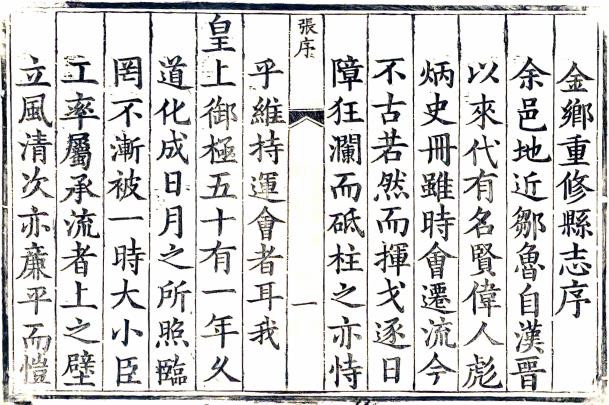 金鄉重修縣志序
余邑地近鄒魯自漢晉
以來代有名賢偉人彪
炳史冊雖時會遷流今
不古若然而揮戈逐日
障狂瀾而砥柱之亦恃
張序
一
乎維持運會者耳我
皇上御極五十有一年久
道化成日月之所照臨
罔不漸被一時大小臣
工率屬承流者上之壁
立風清次亦廉平而愷